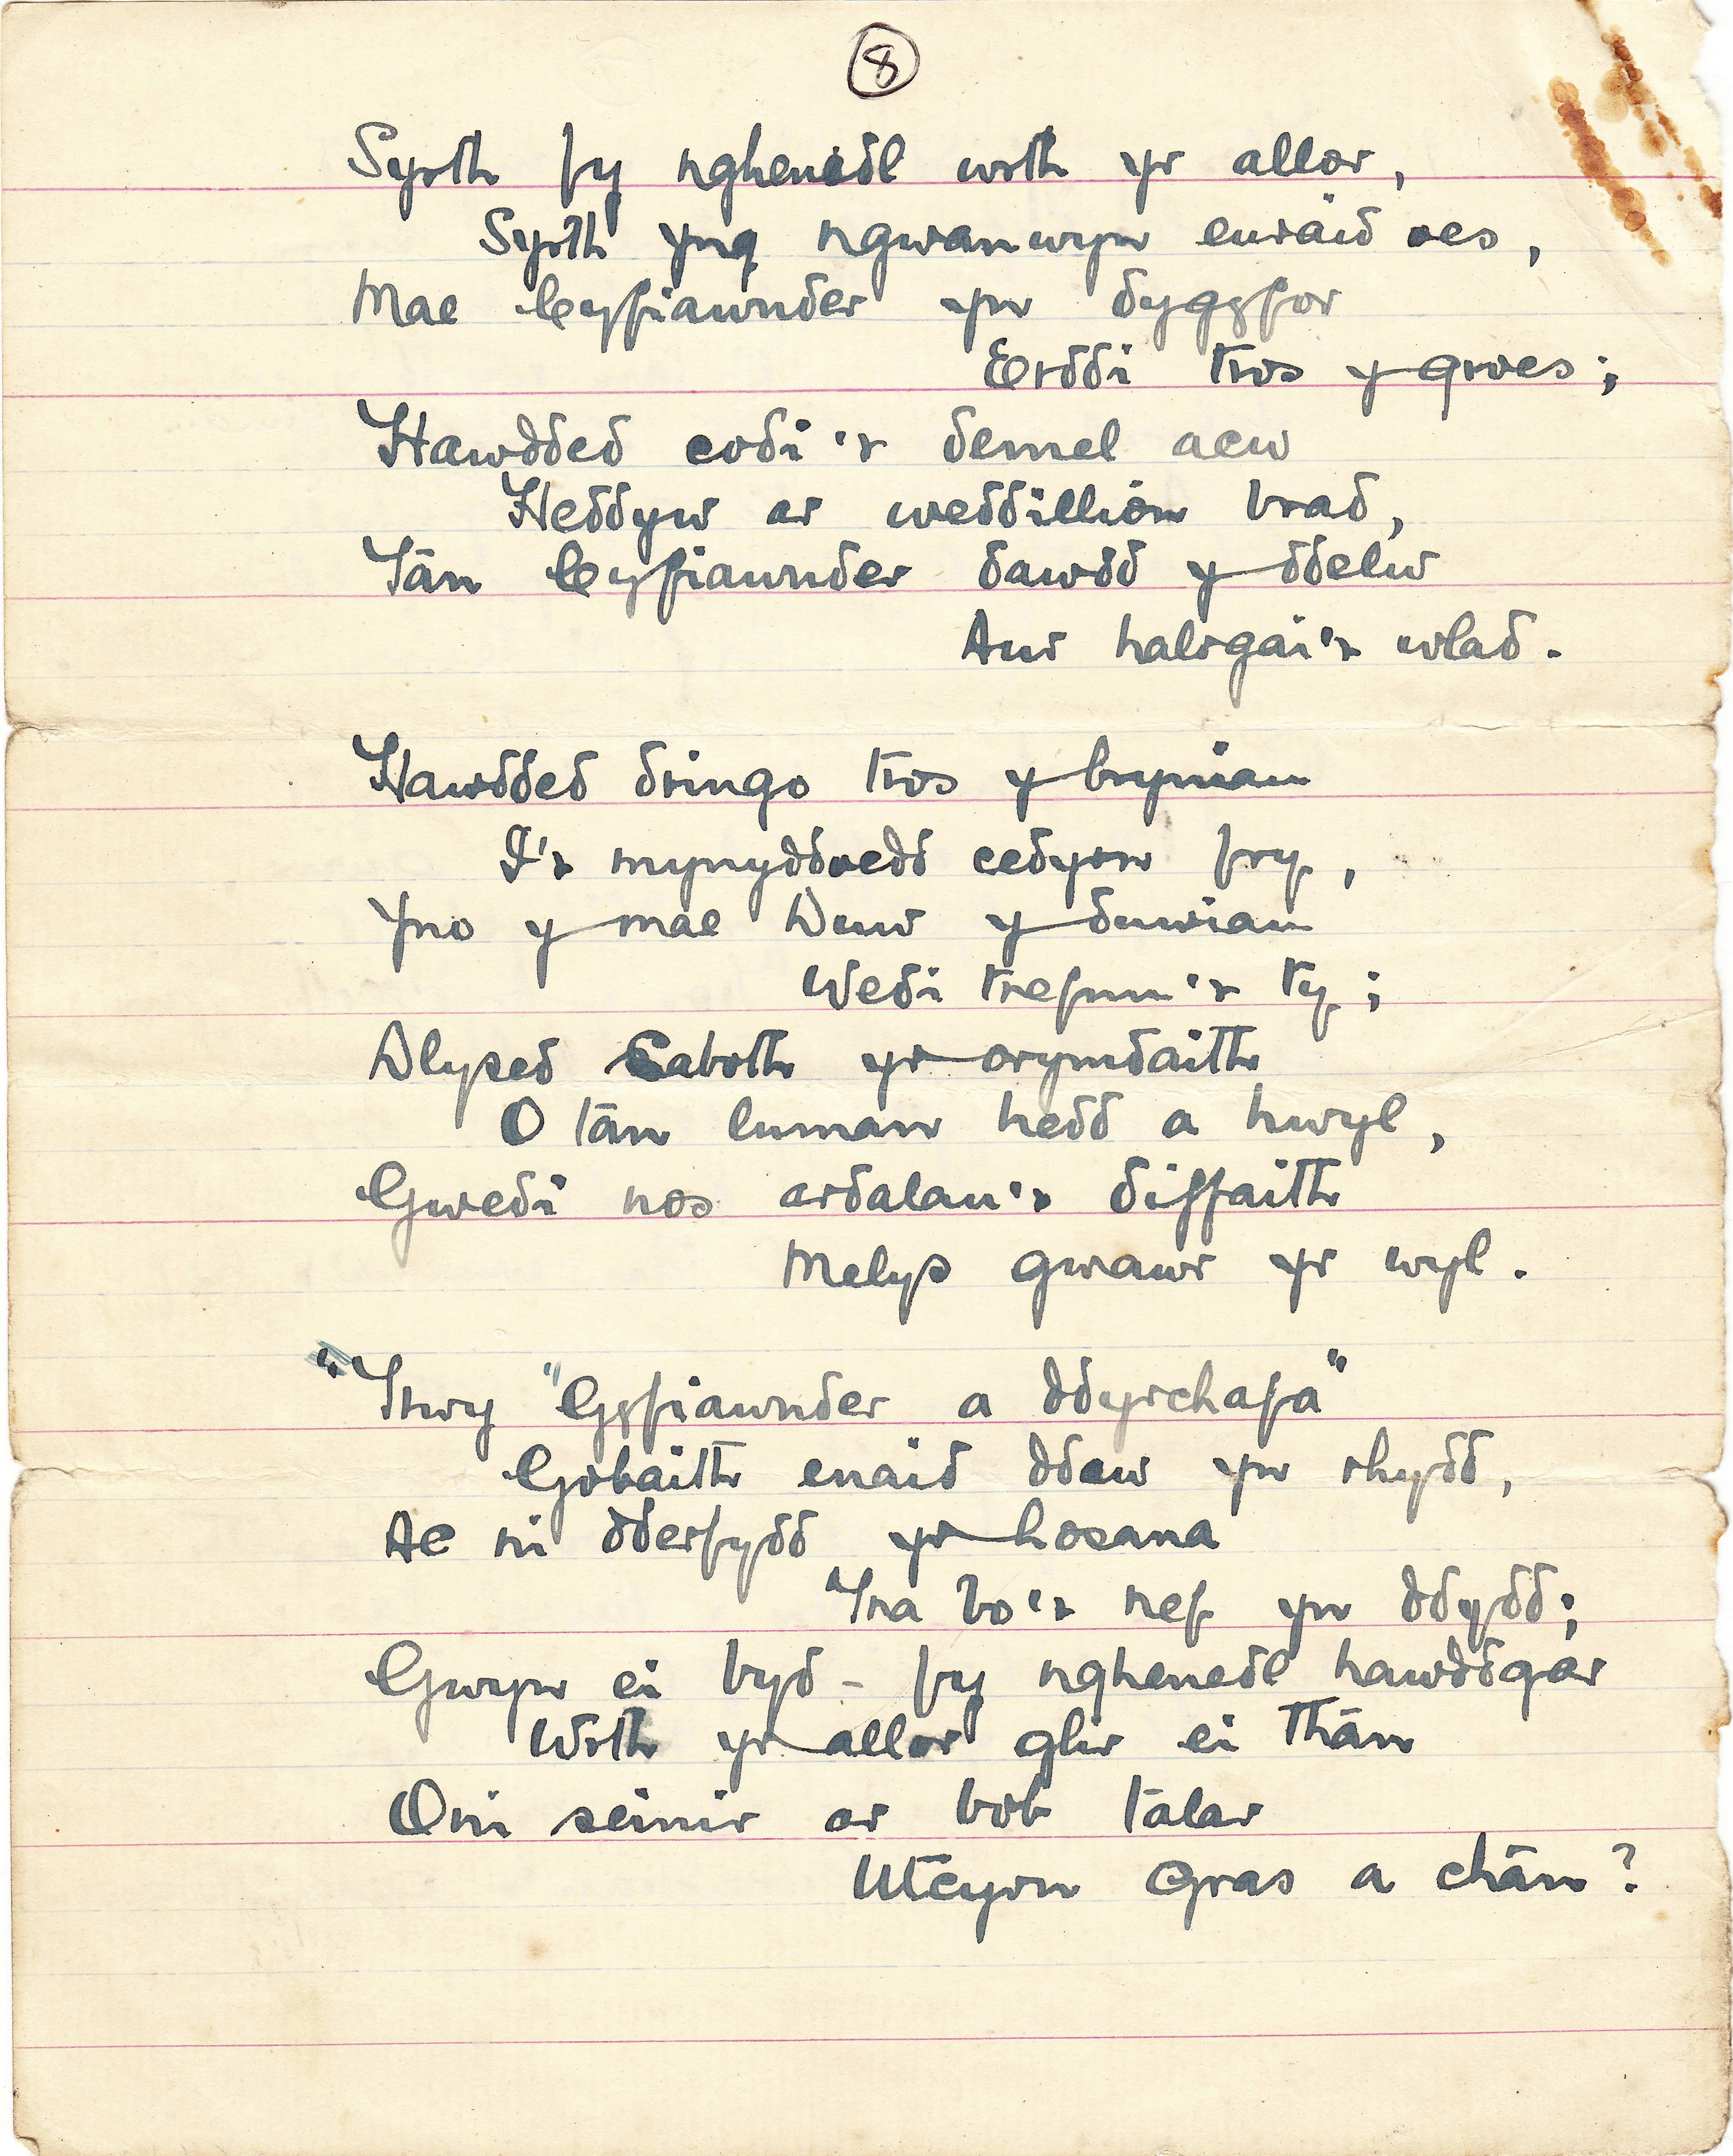 8
Syrth fy nghenedl wrth yr allor,
Syrth yng ngwanwyn euraid oes,
Mae Cyfiawnder yn dygyfor
Erddi tros y groes;
Hawdded codi'r demel acw
Heddyw ar weddillion brad,
Tân Cyfiawnder dawdd y ddelw
Aur halogai'r wlad.
Hawdded dringo tros y bryniau
I'r mynyddoedd cedyrn fry,
Yno y mae Duw y duwiau
Wedi trefnu'r ty;
Dlysed Saboth yr orymdaith
O tân luman hedd a hwyl,
Gwedi nos ardalau'r diffaith
Melys gwawr yr wyl.
"Trwy "Gyfiawnder a ddyrchafa"
Gobaith enaid ddaw yn rhydd,
Ac ni dderfydd yr hosana
Tra bo'r nef yn ddydd;
Gwyn ei byd - fy nghenedl hawddgar
Wrth yr allor glir ei thân
Oni seinir ar bob talar
Utcyrn gras a chân?